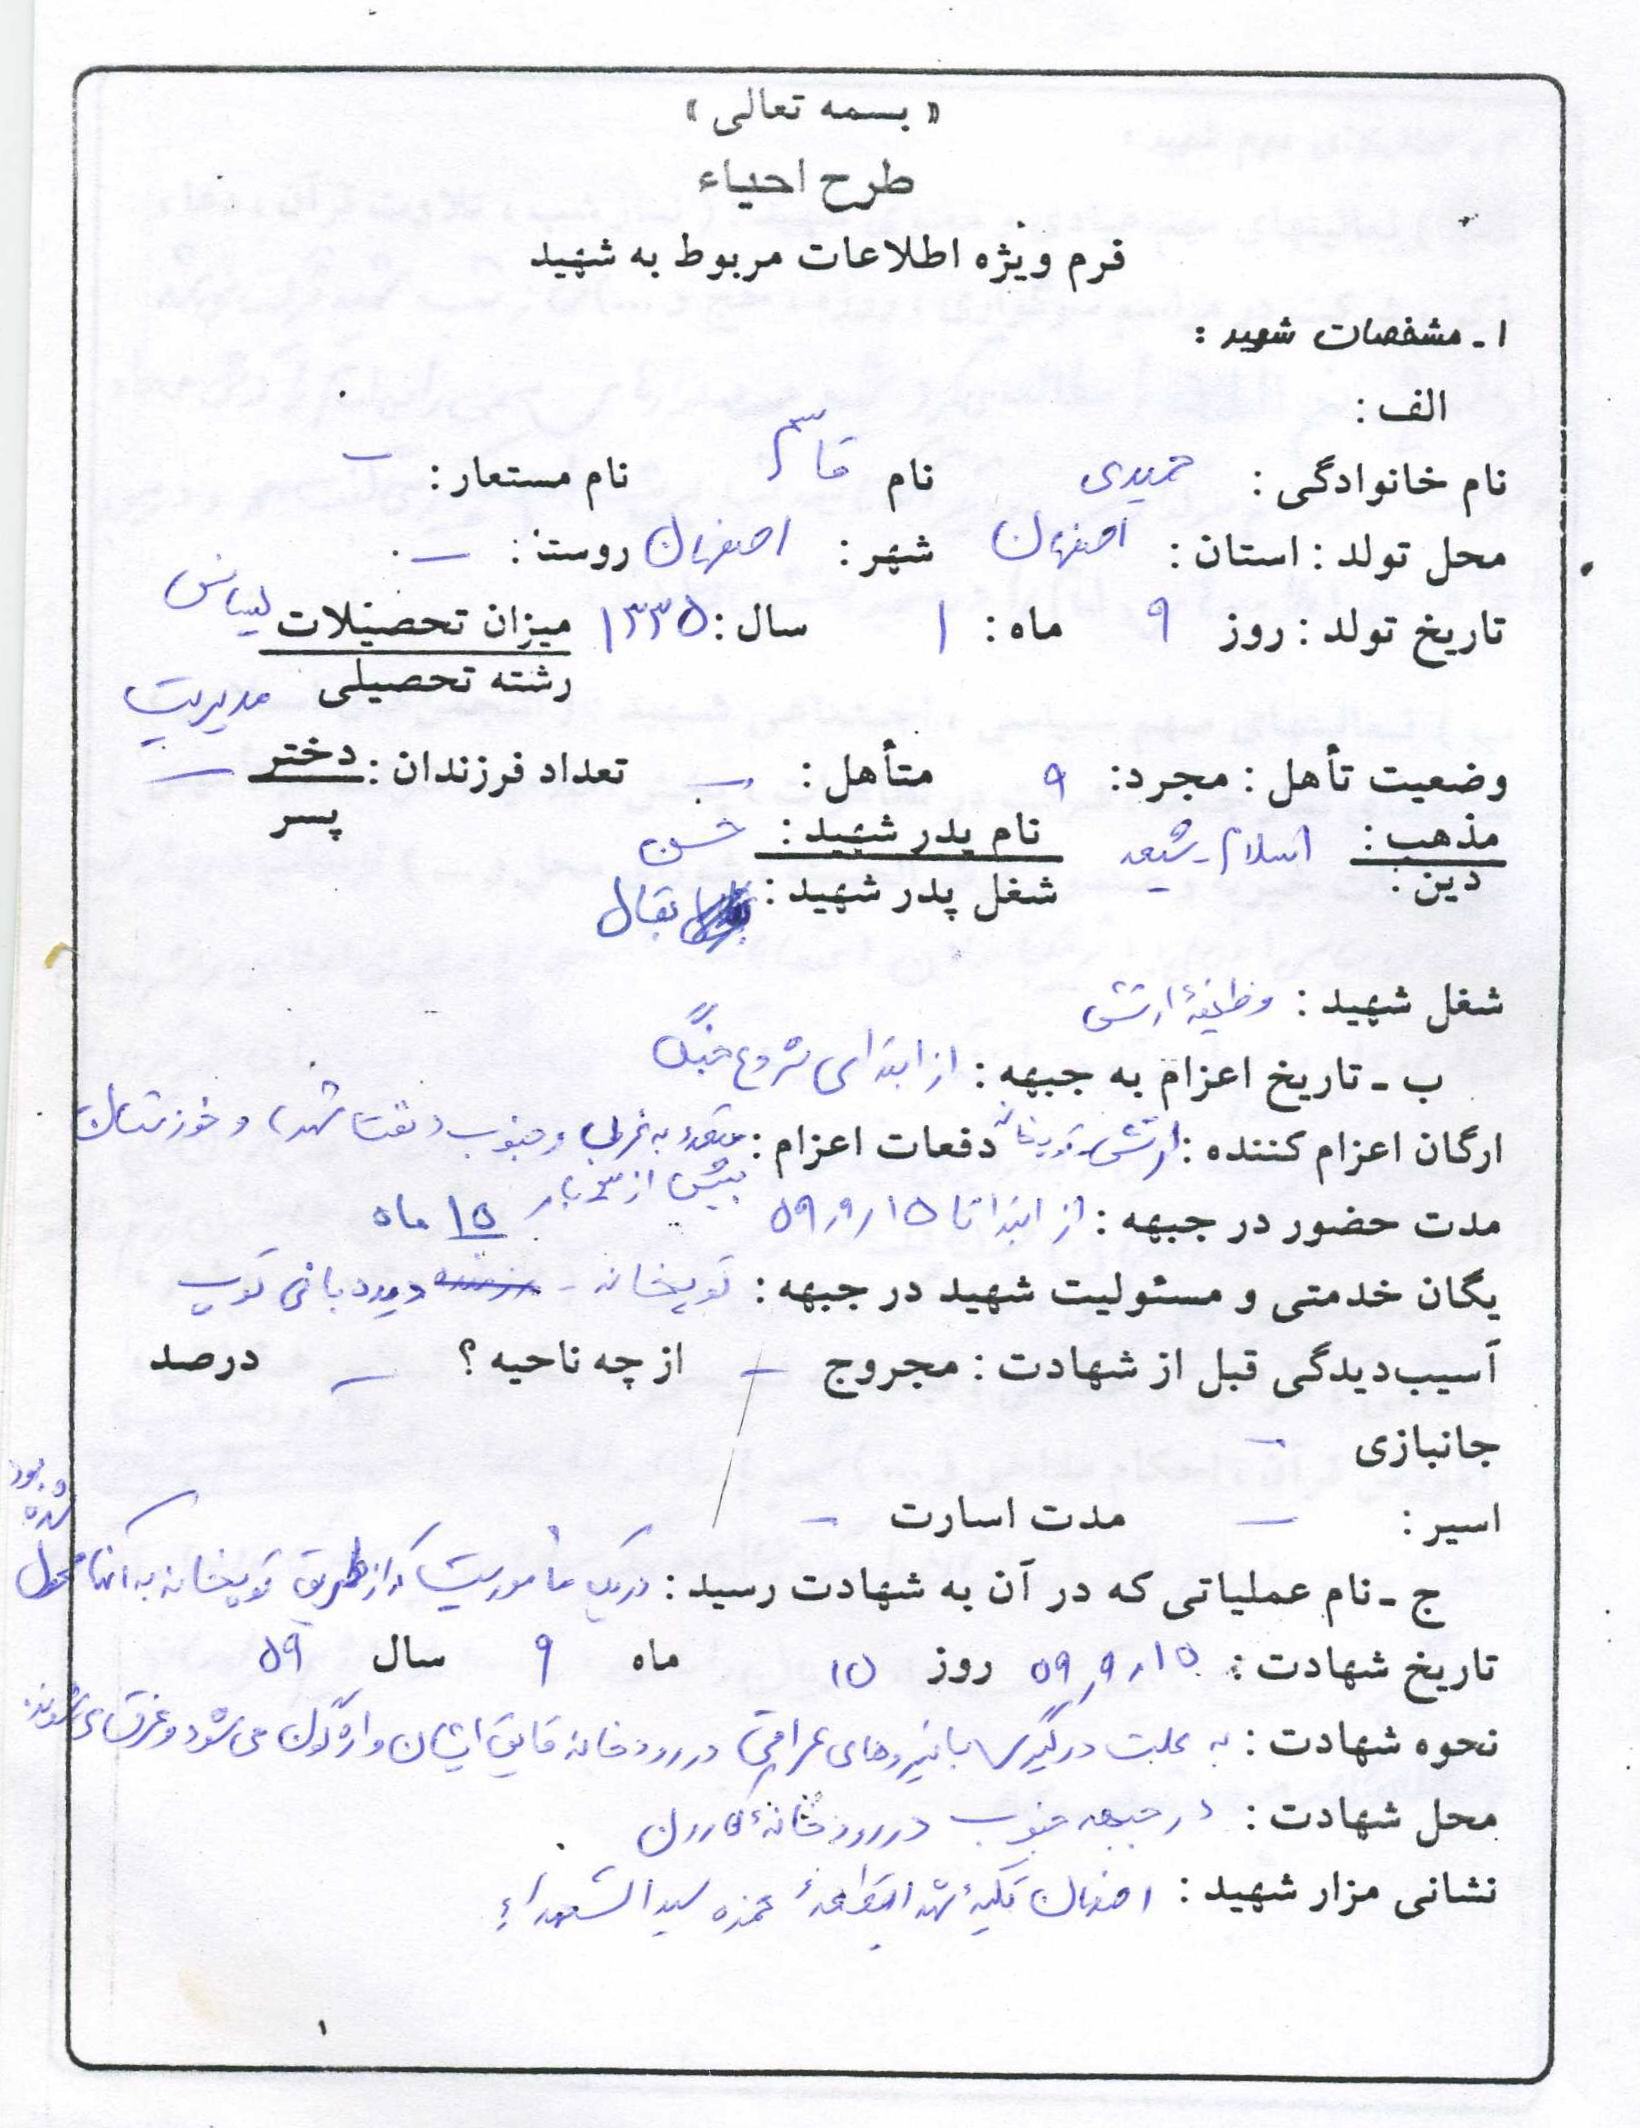 « بسمه تعالی »
طرح احیاء
فرم ویژه اطلاعات مربوط به شهید
۱ ـ مشخصات شهید :
الف :
نام خانوادگی : حمیدی نام قاسم نام مستعار : –
محل تولد : استان : اصفهان شهر : اصفهان روستا : –
تاریخ تولد : روز ۹ ماه : ۱ سال : ۱۳۳۵ میزان تحصیلات لیسانس
رشته تحصیلی مدیریت
وضعیت تأهل : مجرد : ۹ متأهل : – تعداد فرزندان : دختر –
پسر
مذهب : اسلام ـ شیعه نام پدر شهید : حسن
دین : شغل پدر شهید : بقال
شغل شهید : وظیفهٔ ارتش
ب ـ تاریخ اعزام به جبهه : از ابتدای شروع جنگ
ارگان اعزام کننده : ارتش توپخانه دفعات اعزام : به غرب و جنوب و خوزستان
بیش از ۳ بار
مدت حضور در جبهه : از ابتدا تا ۵۹٫۹٫۱۵ ۱۵ ماه
یگان خدمتی و مسئولیت شهید در جبهه : توپخانه - دیده بانی توپ
آسیب‌دیدگی قبل از شهادت : مجروح – از چه ناحیه ؟ – درصد
جانبازی –
اسیر : – مدت اسارت –
ج ـ نام عملیاتی که در آن به شهادت رسید : در یک مأموریت که از طریق توپخانه به آنها محول
شده
و بود
تاریخ شهادت : ۵۹٫۹٫۱۵ روز ۱۵ ماه ۹ سال ۵۹
نحوه شهادت : به علت درگیری با نیروهای عراقی در رودخانه قایق ایشان واژگون می شود و غرق می شوند.
محل شهادت : در جبهه جنوب در رودخانهٔ کارون
نشانی مزار شهید : اصفهان تکیهٔ شهدا قطعهٔ حمزه سیدالشهداء
۱